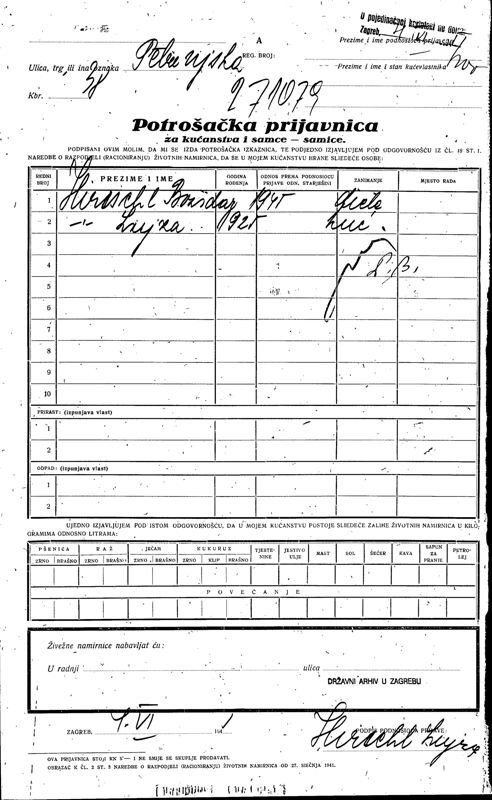 A
Prezime i ime podnosioca prijave
Ulica, trg ili ina oznaka
REG. BROJ:
Prezime i ime i stan kućevlastnika
Kbr. 58
271079
Potrošačka prijavnica
za kućanstva i samce — samice.
PODPISANI OVIM MOLIM, DA MI SE IZDA POTROŠAČKA IZKAZNICA, TE PODJEDNO IZJAVLJUJEM POD ODGOVORNOŠĆU IZ ČL. 19 ST. 1.
NAREDBE O RAZPODJELI (RACIONIRANJU) ŽIVOTNIH NAMIRNICA, DA SE U MOJEM KUĆANSTVU HRANE SLIEDEĆE OSOBE:
REDNI BROJ PREZIME I IME GODINA RODJENJA ODNOS PREMA PODNOSIOCU PRIJAVE ODN. STARJEŠINI ZANIMANJE MJESTO RADA
1 Hirschl Božidar
2
3
4
5
6
7
8
9
10
PRIRAST: (izpunjava vlast)
1
2
ODPAD: (izpunjava vlast)
1
2
UJEDNO IZJAVLJUJEM POD ISTOM ODGOVORNOŠĆU, DA U MOJEM KUĆANSTVU POSTOJE SLIEDEĆE ZALIHE ŽIVOTNIH NAMIRNICA U KILO-
GRAMIMA ODNOSNO LITRAMA:
PŠENICA RAŽ JEČAM KUKURUZ TJESTENINE JESTIVO ULJE MAST SOL ŠEĆER KAVA SAPUN ZA PRANJE PETROLEJ
ZRNO BRAŠNO ZRNO BRAŠNO ZRNO BRAŠNO ZRNO KLIP BRAŠNO
POVEĆANJE
Živežne namirnice nabavljat ću:
U radnji ulica
DRŽAVNI ARHIV U ZAGREBU
ZAGREB, VI 194
PODPIS PODNOSIOCA PRIJAVE:
Hirschl
OVA PRIJAVNICA STOJI I NE SMIJE SE SKUPLJE PRODAVATI.
OBRAZAC K ČL. 2 ST. 3 NAREDBE O RAZPODJELI (RACIONIRANJU) ŽIVOTNIH NAMIRNICA OD 27. SIEČNJA 1941.